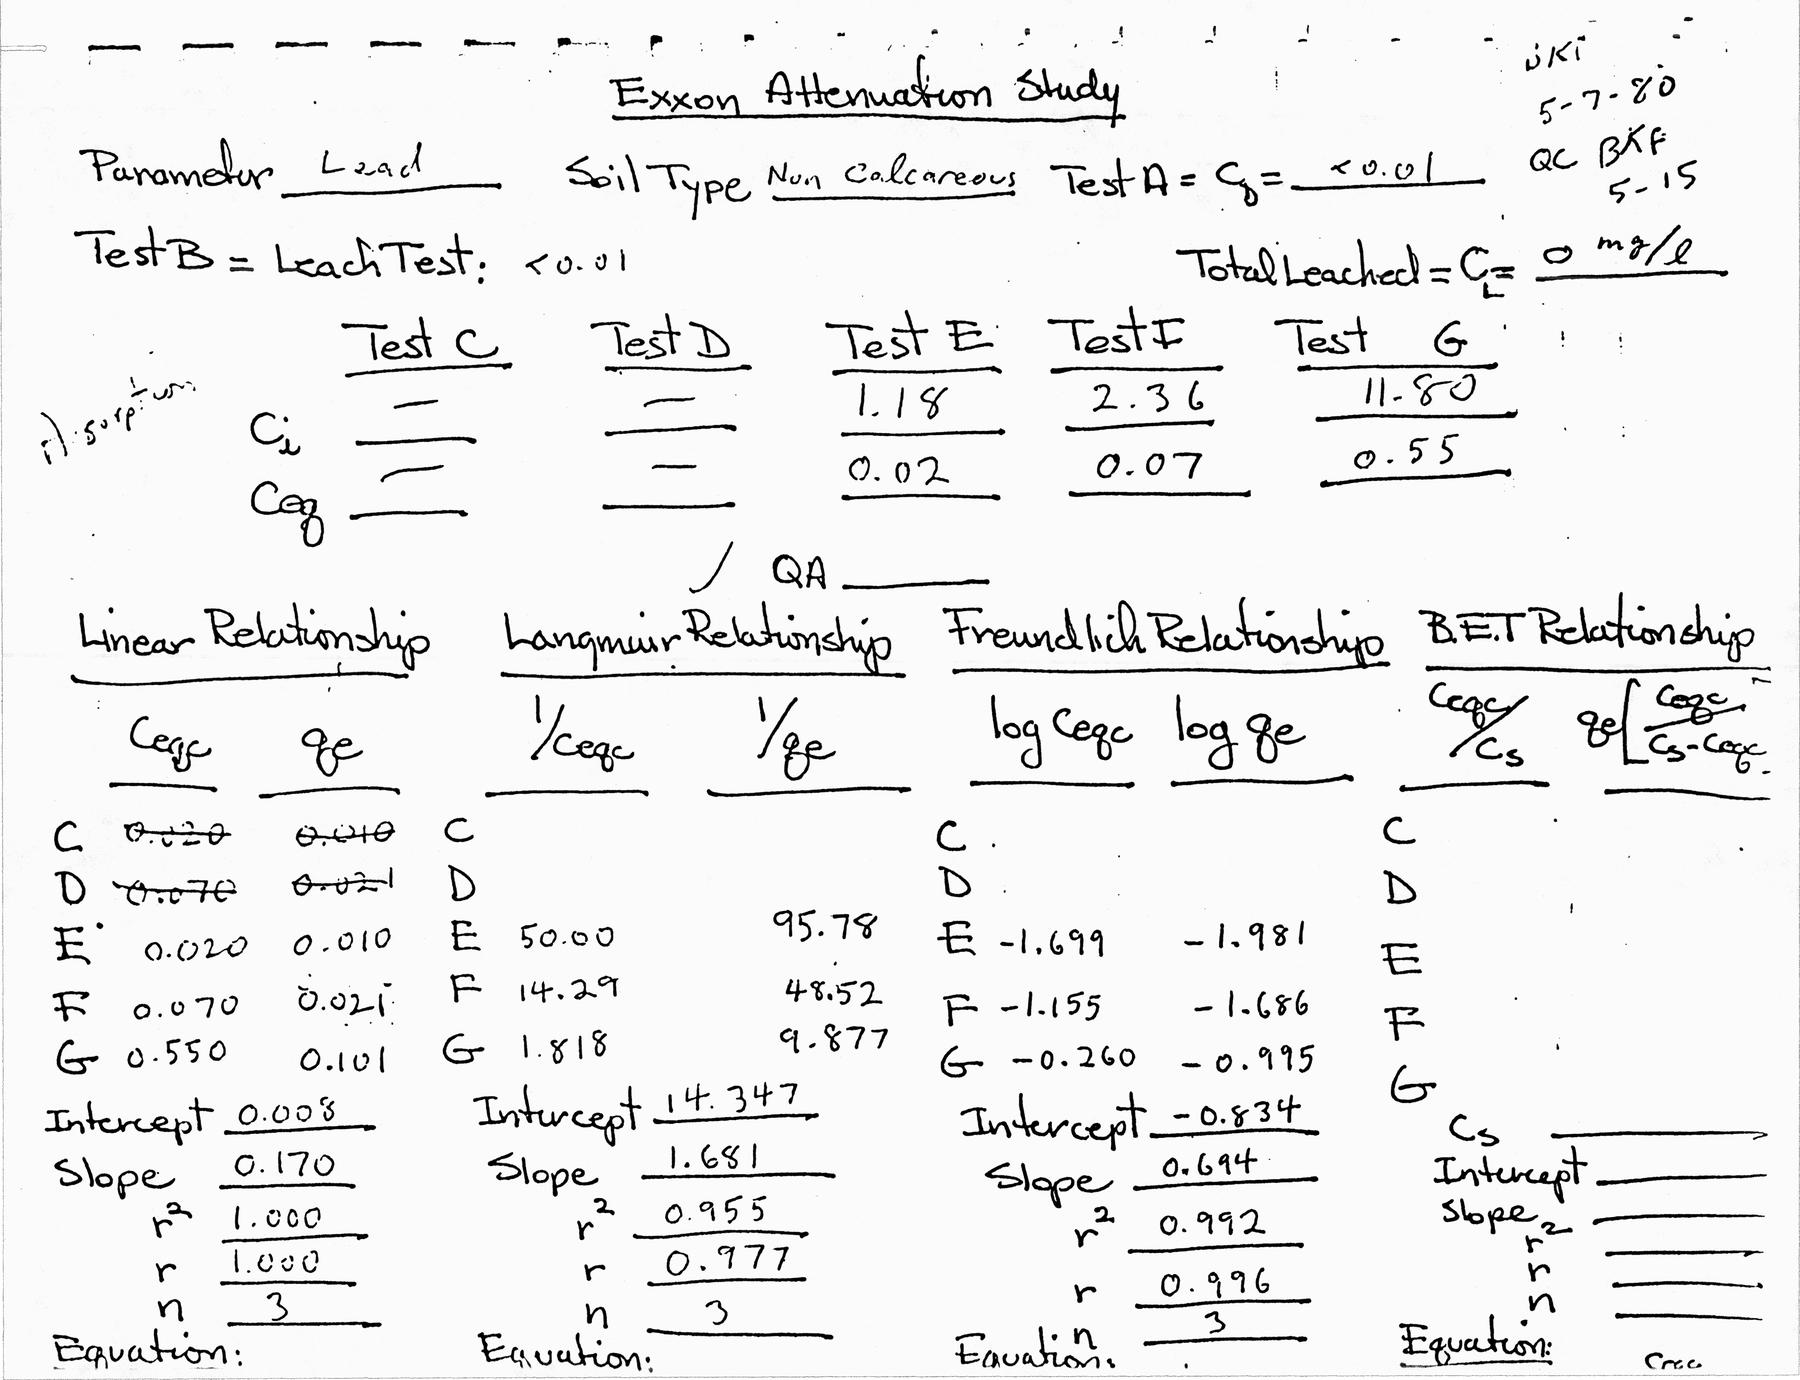 Exxon Attenuation Study
5-7-80
QC BKF
5-15
Parameter Lead Soil Type Non Calcareous Test A = C₀ = <0.01
Test B = Leach Test: <0.01 Total Leached = C_L = 0 mg/l
Test C Test D Test E Test F Test G
Ci — — 1.18 2.36 11.80
Ceq — — 0.02 0.07 0.55
✓ QA
Linear Relationship Langmuir Relationship Freundlich Relationship B.E.T Relationship
Ceqc qe 1/Ceqc 1/qe log Ceqc log qe Ceqc/Cs qe[Ceqc/Cs-Ceqc
C 0.020 0.010 C C C
D 0.070 0.021 D D D
E 0.020 0.010 E 50.00 95.78 E -1.699 -1.981 E
F 0.070 0.021 F 14.29 48.52 F -1.155 -1.686 F
G 0.550 0.101 G 1.818 9.877 G -0.260 -0.995 G
Intercept 0.008 Intercept 14.347 Intercept -0.834 Cs
Slope 0.170 Slope 1.681 Slope 0.694 Intercept
r² 1.000 r² 0.955 r² 0.992 Slope
r 1.000 r 0.977 r 0.996 r²
n 3 n 3 n 3 r
n
Equation: Equation: Equation: Equation: